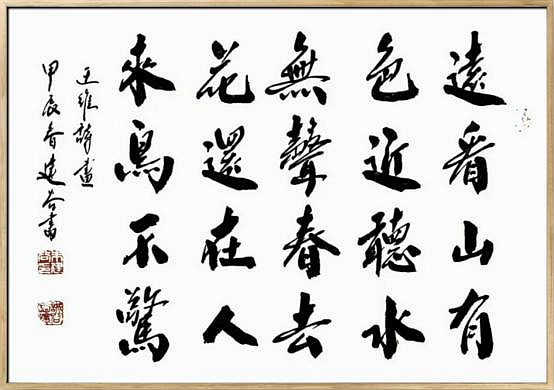 遠看山有
色近聽水
無聲春去
花還在人
來鳥不驚
王維詩畫
甲辰春建谷書